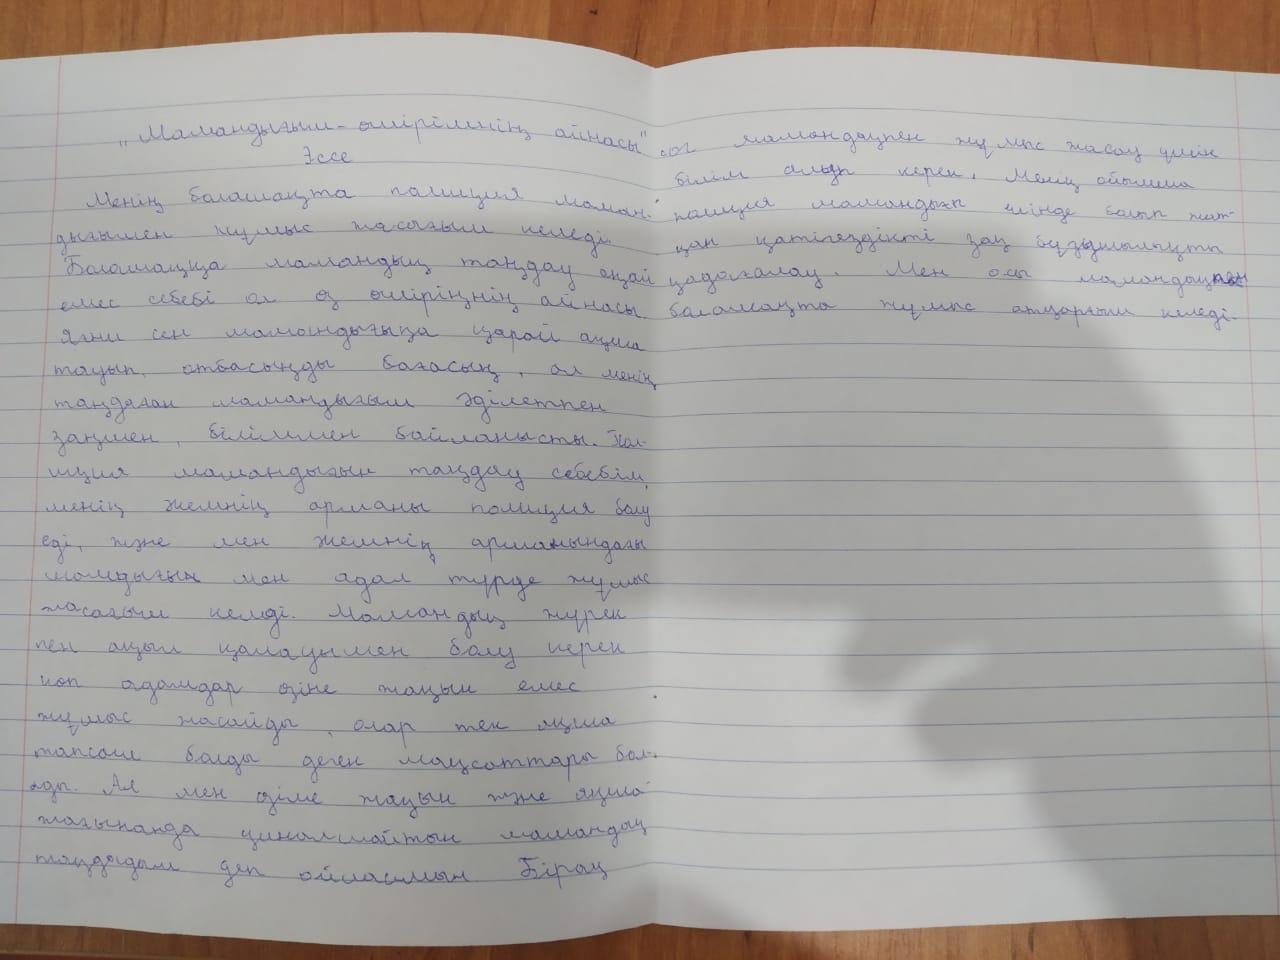 „Мамандығым - өмірімнің айнасы"
Эссе
Менің болашақта полиция маман-
дығымен жұмыс жасағым келеді.
Болашаққа мамандық таңдау оңай
емес себебі ол өз өміріңнің айнасы.
Яғни сен мамандығыңа қарай ақша
тауып, отбасыңды бағасың, ал менің
таңдаған мамандығым әділетпен
заңмен, біліммен байланысты. Пол-
иция мамандығын таңдау себебім,
менің әкемнің арманы полиция болу
еді, және мен әкемнің арманындағы
мамдығын мен адал түрде жұмыс
жасағым келеді. Мамандық жүрек
пен ақыл қалауымен болу керек
көп адамдар өзіне жақын емес
жұмыс жасайды, олар тек ақша
тапсам болды деген мақсаттары бол-
ады. Ал мен өзіме жақын және ақша
жағынанда қиналмайтын мамандық
таңдадым деп ойлаймын Бірақ
ол мамандықпен жұмыс жасау үшін
білім алып керек. Менің ойымша
полиция мамандығы елінде болып жат-
қан қателездікті заң бұзышылықты
қадағалау. Мен осы мамандықпен
балашақта жұмыс атқарғым келеді.